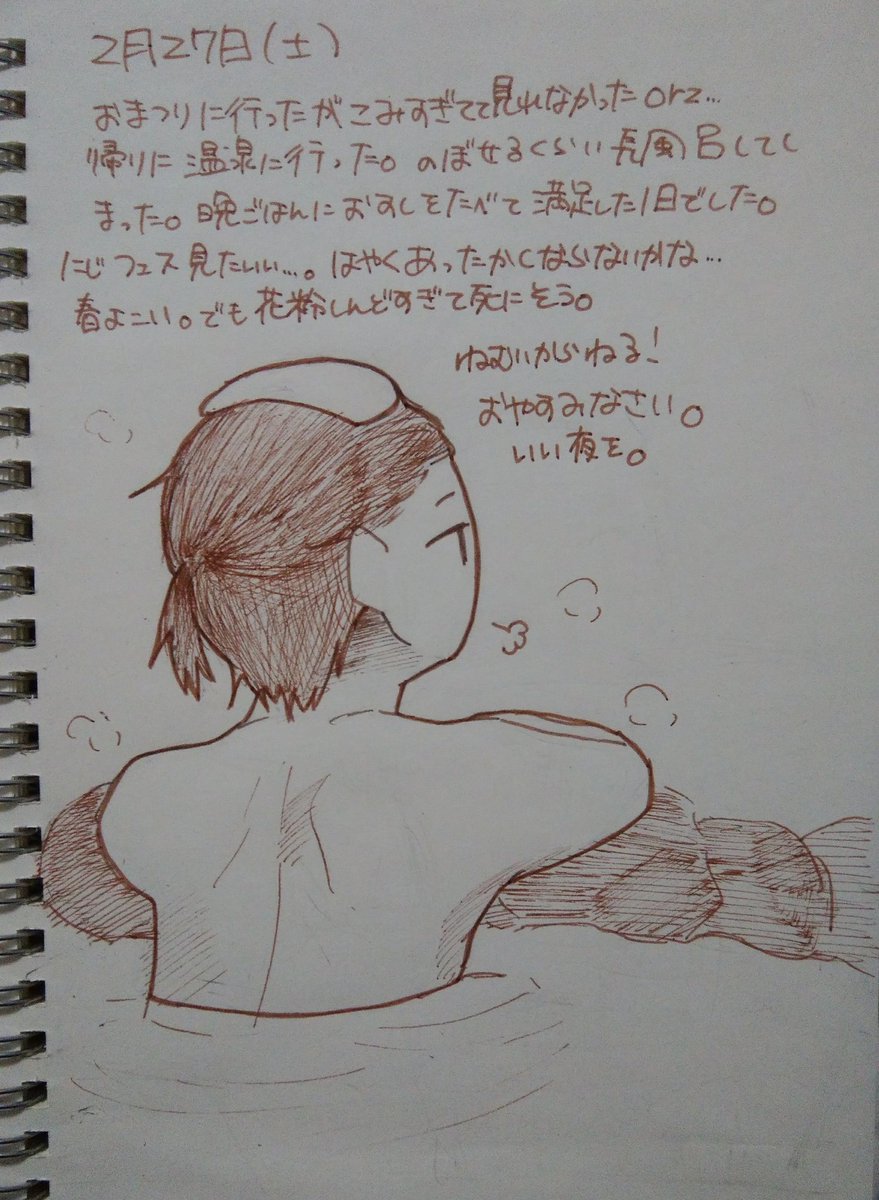 2月27日(土)
おまつりに行ったがこみすぎてて見れなかったorz…
帰りに温泉に行った。のぼせるくらい長風呂してし
まった。晩ごはんにおすしをたべて満足した1日でした。
にじフェス見たいい…。はやくあったかくならないかな…
春よこい。でも花粉しんどすぎて死にそう。
ねむいからねる!
おやすみなさい。
いい夜を。